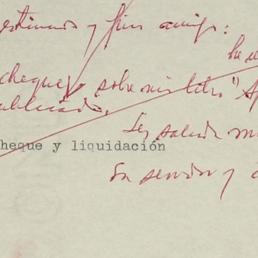 estimado y fino amigo:
he
cheque sobre mi libro "A
publicado.
Les saluda
heque y liquidación
Su servidor y a